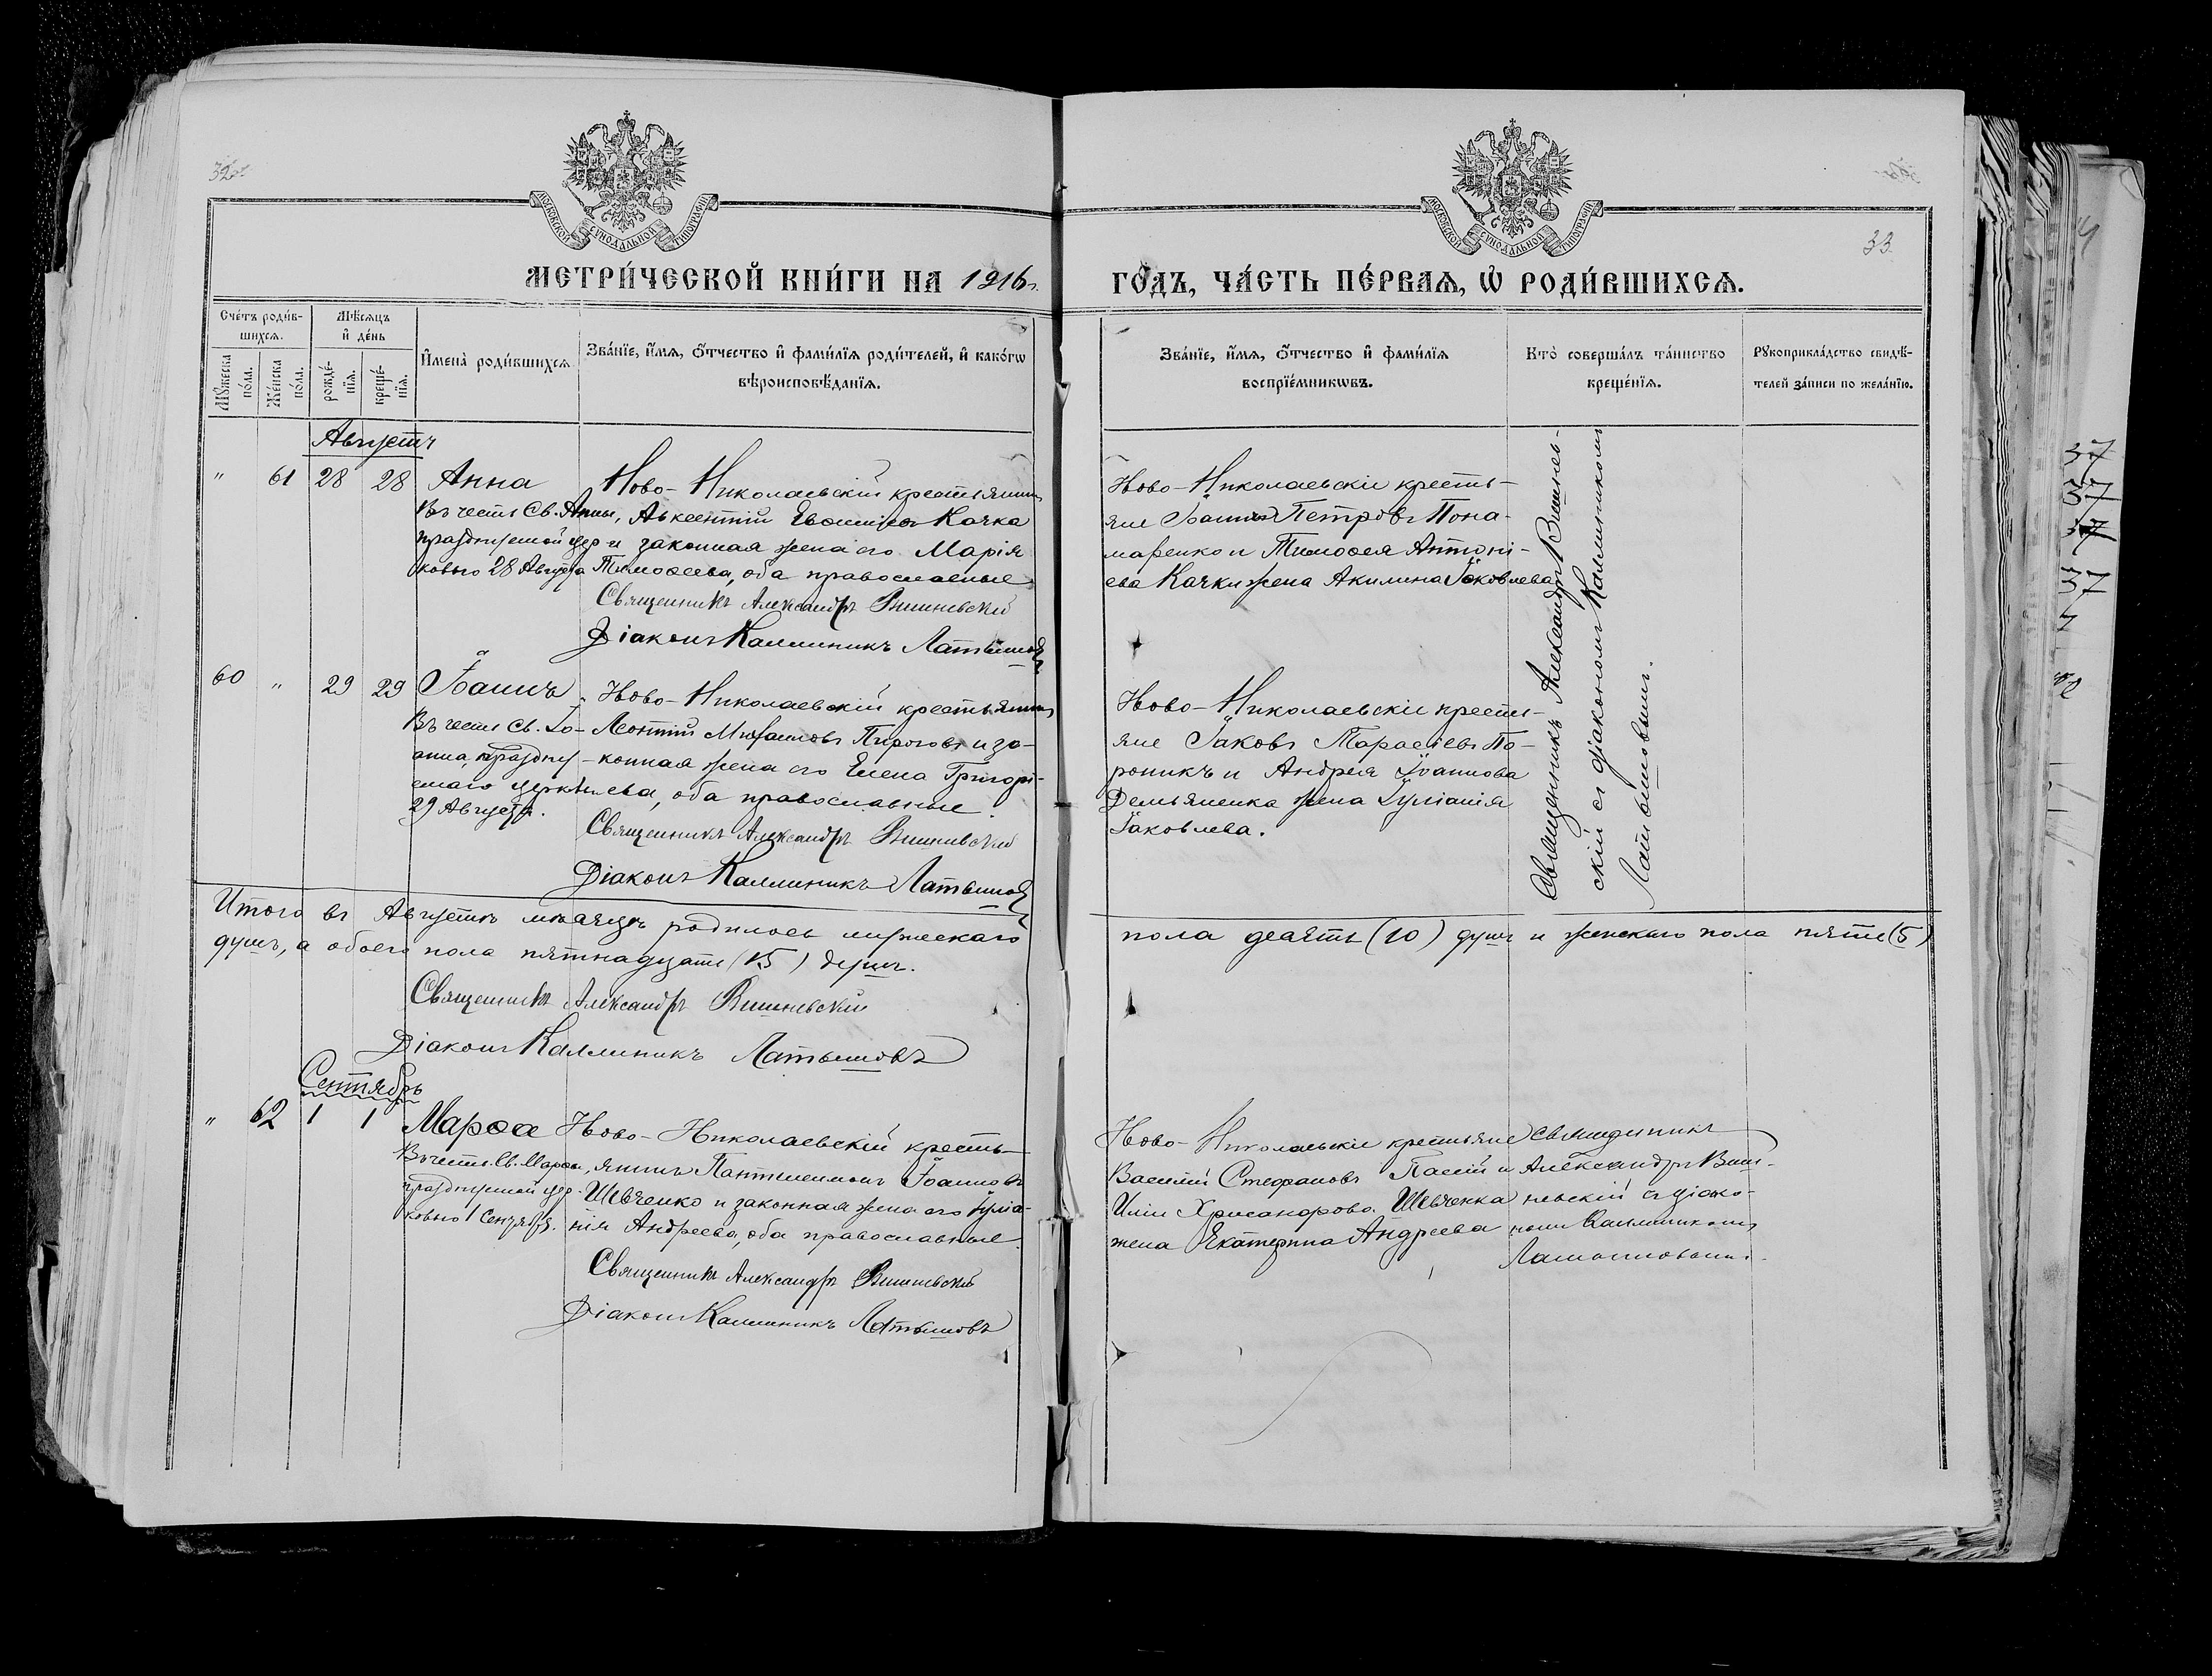 33
МОСКОВСКОЙ СѴНОДАЛЬНОЙ ТИПОГРАФІИ
МОСКОВСКОЙ СѴНОДАЛЬНОЙ ТИПОГРАФІИ
МЕТРИ́ЧЕСКОЙ КНИ́ГИ НА 1916 г.
ГО́ДЪ, ЧА́СТЬ ПЕ́РВАѦ, Ѡ РОДИ́ВШИХСѦ.
Сче́тъ роди́в-
шихсѧ.
Мꙋ́жеска по́ла.
Же́нска по́ла.
Мѣ́сѧцъ и де́нь
рожде́-
нїѧ.
креще́-
нїѧ.
Имена̀ роди́вшихсѧ
Зва́нїе, и́мѧ, о́тчество и фами́лїѧ роди́телей, и како́гѡ
вѣроисповѣ́данїѧ.
Зва́нїе, и́мѧ, о́тчество и фами́лїѧ
воспрїе́мникѡвъ.
Кто̀ соверша́лъ та́инство
креще́нїѧ.
Рꙋкоприкла́дство свидѣ́-
телей за́писи по жела́нїю.
Августъ
" 61 28 28 Анна
Въ честь Св. Анны,
празднуемой цер-
ковью 28 Августа
Ново-Николаевскій крестьянинъ
Авксентій Качка
и законная жена его Марія
Тимоѳеева, оба православные
Священникъ Александръ Вишневскій
Діаконъ Каллиникъ Латышовъ
Ново-Николаевскіе кресть-
яне Іоаннъ Петровъ Пона-
маренко и Тимоѳея Антоні-
ева Качки жена Акилина Іаковлева
Священникъ Александръ Вишнев-
скій съ діакономъ Каллиникомъ
Латышовымъ.
60 " 29 29 Іоаннъ
Въ честь Св. Іо-
анна, праздну-
емаго церковью
29 Августа.
Ново-Николаевскій крестьянинъ
Леонтій Михаиловъ Пироговъ и за-
конная жена его Елена Григорі-
ева, оба православные.
Священникъ Александръ Вишневскій
Діаконъ Каллиникъ Латышовъ
Ново-Николаевскіе кресть-
яне Іаковъ Тарасіевъ По-
роникъ и Андрея Іоаннова
Демьяненка жена Іуліанія
Іаковлева.
Итого въ Августѣ мѣсяцѣ родилось мужескаго
пола десять (10) душъ и женскаго пола пять (5)
душъ, а обоего пола пятнадцать (15) душъ.
Священникъ Александръ Вишневскій
Діаконъ Каллиникъ Латышовъ
Сентябрь
" 62 1 1 Марѳа
Въ честь Св. Марѳы,
празднуемой цер-
ковью 1 Сентября.
Ново-Николаевскій кресть-
янинъ Пантелеимонъ Іоанновъ
Шевченко и законная жена его Іуліа-
нія Андреева, оба православные.
Священникъ Александръ Вишневскій
Діаконъ Каллиникъ Латышовъ
Ново-Николаевскіе крестьяне
Василій Стефановъ и
Иліи Хрисанфова Шевченка
жена Екатерина Андреева
Священникъ
Александръ Виш-
невскій съ діако-
номъ Каллиникомъ
Латышовымъ.
37
37
37
37
7